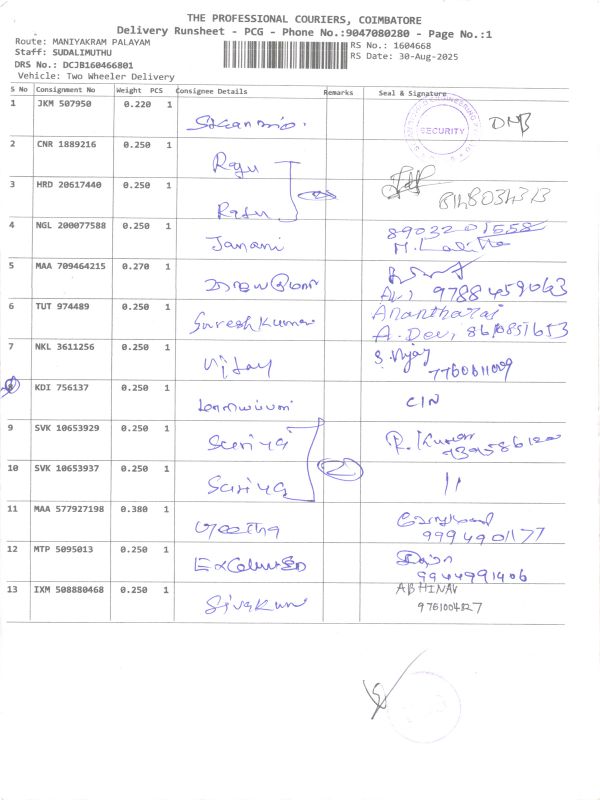 THE PROFESSIONAL COURIERS, COIMBATORE
Delivery Runsheet - PCG - Phone No.:9047080280 - Page No.:1
Route: MANIYAKRAM PALAYAM
Staff: SUDALIMUTHU
DRS No.: DCJB160466801
Vehicle: Two Wheeler Delivery
RS No.: 1604668
RS Date: 30-Aug-2025
S No Consignment No Weight PCS Consignee Details Remarks Seal & Signature
1 JKM 507950 0.220 1 SECURITY
2 CNR 1889216 0.250 1 Raju
3 HRD 20617440 0.250 1 Raju 8148034313
4 NGL 200077588 0.250 1 Janani 8903201558
5 MAA 709464215 0.270 1 9788459063
6 TUT 974489 0.250 1 Sureshkumar Anantharaj
A. Dev, 8610851653
7 NKL 3611256 0.250 1 Vijay S. Vijay
7760611009
8 KDI 756137 0.250 1 CIN
9 SVK 10653929 0.250 1 Suriya R. Kumar
10 SVK 10653937 0.250 1 Suriya 11
11 MAA 577927198 0.380 1 Geetha
9994901177
12 MTP 5095013 0.250 1
9944991406
13 IXM 508880468 0.250 1 Sivakum ABHINAV
9761004827